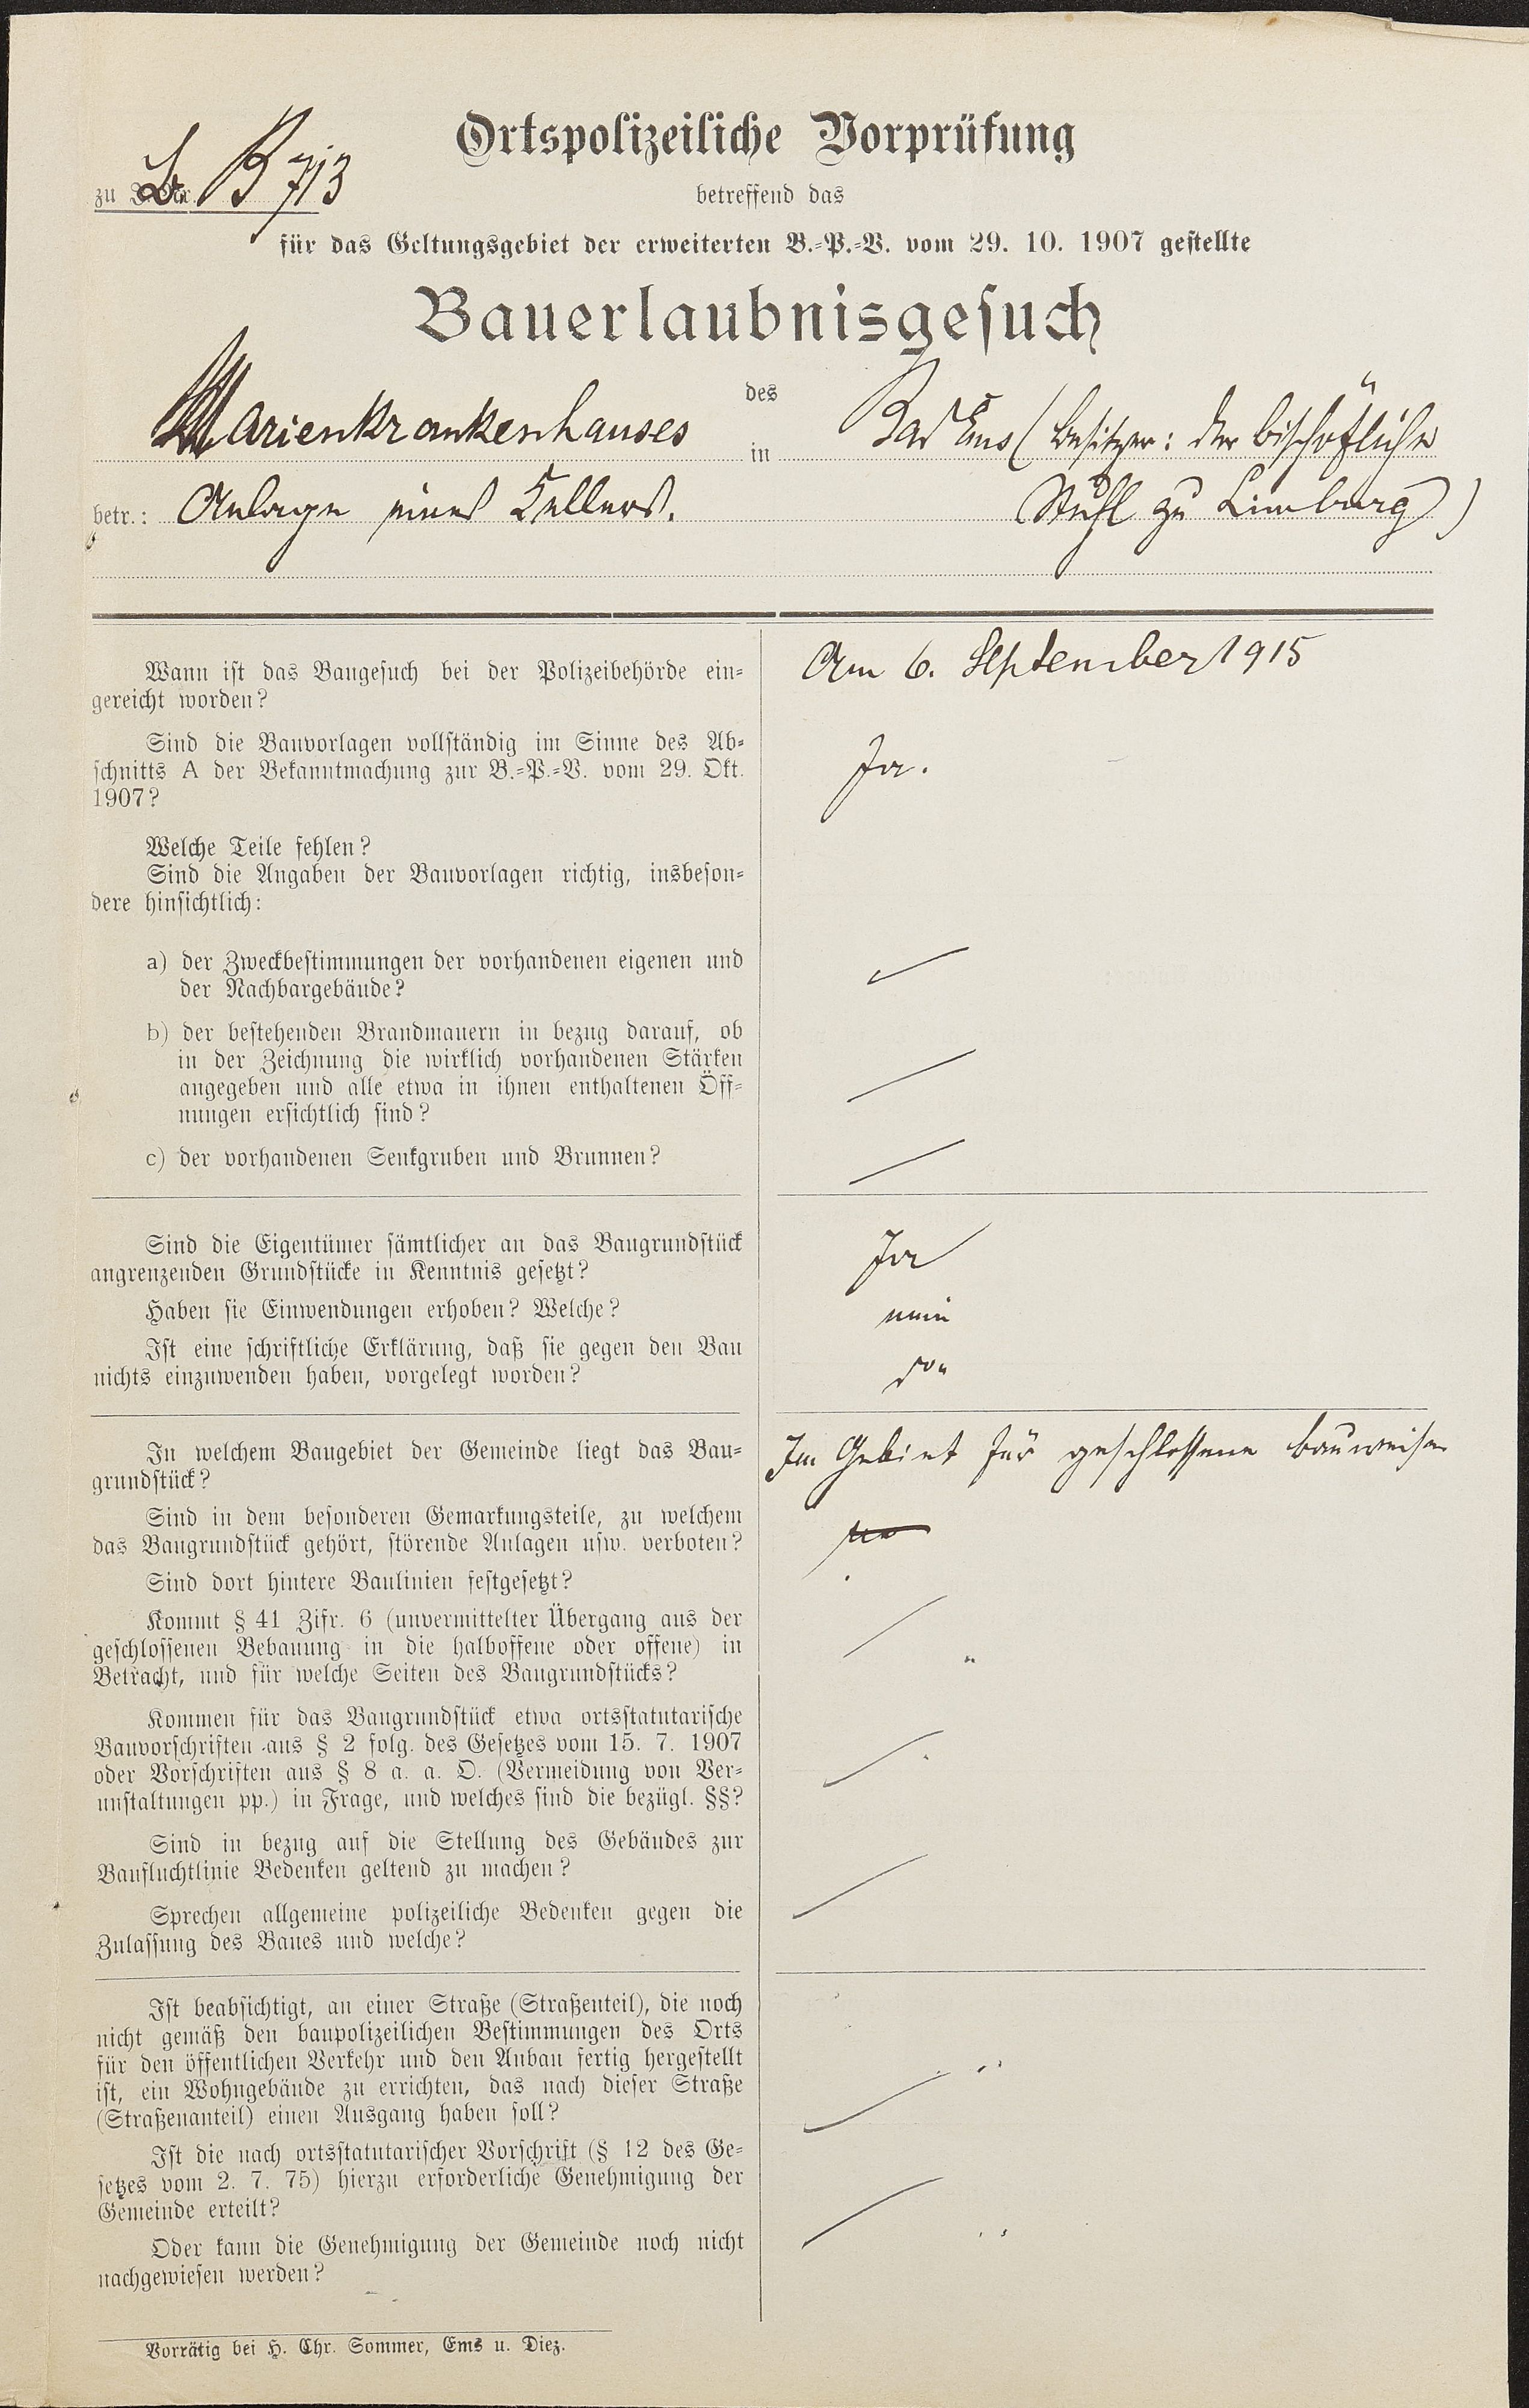 Ortspolizeiliche Vorprüfung
zu B 713
betreffend das
für das Geltungsgebiet der erweiterten B.=P.=V. vom 29. 10. 1907 gestellte
Bauerlaubnisgesuch
des
Marienkrankenhauses in Bad Ems (Besitzer: der bischöfliche
betr.: Anlage eines Kellers. Stuhl zu Limburg)
Wann ist das Baugesuch bei der Polizeibehörde ein=
gereicht worden?
Am 6. September 1915
Sind die Bauvorlagen vollständig im Sinne des Ab=
schnitts A der Bekanntmachung zur B.=P.=V. vom 29. Okt.
1907?
Ja.
Welche Teile fehlen?
Sind die Angaben der Bauvorlagen richtig, insbeson=
dere hinsichtlich:
a) der Zweckbestimmungen der vorhandenen eigenen und
der Nachbargebäude?
b) der bestehenden Brandmauern in bezug darauf, ob
in der Zeichnung die wirklich vorhandenen Stärken
angegeben und alle etwa in ihnen enthaltenen Öff=
nungen ersichtlich sind?
c) der vorhandenen Senkgruben und Brunnen?
Sind die Eigentümer sämtlicher an das Baugrundstück
angrenzenden Grundstücke in Kenntnis gesetzt?
Ja
Haben sie Einwendungen erhoben? Welche?
nein
Ist eine schriftliche Erklärung, daß sie gegen den Bau
nichts einzuwenden haben, vorgelegt worden?
In welchem Baugebiet der Gemeinde liegt das Bau=
grundstück?
Im Gebiet für geschlossene Bauweise
Sind in dem besonderen Gemarkungsteile, zu welchem
das Baugrundstück gehört, störende Anlagen usw. verboten?
Sind dort hintere Baulinien festgesetzt?
Kommt § 41 Zifr. 6 (unvermittelter Übergang aus der
geschlossenen Bebauung in die halboffene oder offene) in
Betracht, und für welche Seiten des Baugrundstücks?
Kommen für das Baugrundstück etwa ortsstatutarische
Bauvorschriften aus § 2 folg. des Gesetzes vom 15. 7. 1907
oder Vorschriften aus § 8 a. a. O. (Vermeidung von Ver=
unstaltungen pp.) in Frage, und welches sind die bezügl. §§?
Sind in bezug auf die Stellung des Gebäudes zur
Baufluchtlinie Bedenken geltend zu machen?
Sprechen allgemeine polizeiliche Bedenken gegen die
Zulassung des Baues und welche?
Ist beabsichtigt, an einer Straße (Straßenteil), die noch
nicht gemäß den baupolizeilichen Bestimmungen des Orts
für den öffentlichen Verkehr und den Anbau fertig hergestellt
ist, ein Wohngebäude zu errichten, das nach dieser Straße
(Straßenanteil) einen Ausgang haben soll?
Ist die nach ortsstatutarischer Vorschrift (§ 12 des Ge=
setzes vom 2. 7. 75) hierzu erforderliche Genehmigung der
Gemeinde erteilt?
Oder kann die Genehmigung der Gemeinde noch nicht
nachgewiesen werden?
Vorrätig bei H. Chr. Sommer, Ems u. Diez.